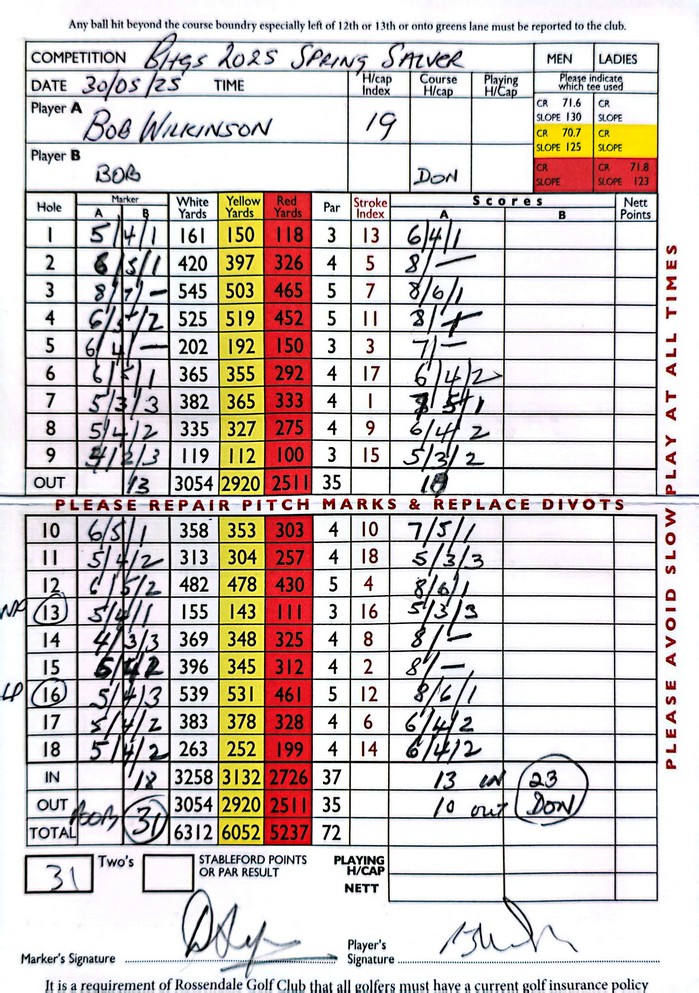 Any ball hit beyond the course boundry especially left of 12th or 13th or onto greens lane must be reported to the club.
COMPETITION BHGS 2025 SPRING SALVER MEN LADIES
DATE 30/05/25 TIME H/cap Index Course H/cap Playing H/Cap Please indicate which tee used
Player A BOB WILKINSON 19 CR 71.6 SLOPE 130 CR SLOPE
CR 70.7 SLOPE 125 CR SLOPE
Player B BOB DON CR SLOPE CR 71.8 SLOPE 123
Hole Marker A B White Yards Yellow Yards Red Yards Par Stroke Index Scores A B Nett Points
1 5/4/1 161 150 118 3 13 6/4/1
2 6/5/1 420 397 326 4 5 8/—
3 8/7/— 545 503 465 5 7 8/6/1
4 6/5/2 525 519 452 5 11 8/
5 6/4/— 202 192 150 3 3 7/—
6 6/5/1 365 355 292 4 17 6/4/2
7 5/3/3 382 365 333 4 1 5/1
8 5/4/2 335 327 275 4 9 6/4/2
9 4/2/3 119 112 100 3 15 5/3/2
OUT 13 3054 2920 2511 35 10
PLEASE REPAIR PITCH MARKS & REPLACE DIVOTS
10 6/5/1 358 353 303 4 10 7/5/1
11 5/4/2 313 304 257 4 18 5/3/3
12 6/5/2 482 478 430 5 4 8/6/1
NP 13 5/4/1 155 143 111 3 16 5/3/3
14 4/3/3 369 348 325 4 8 8/—
15 5/4/2 396 345 312 4 2 8/—
LP 16 5/4/3 539 531 461 5 12 8/6/1
17 5/4/2 383 378 328 4 6 6/4/2
18 5/4/2 263 252 199 4 14 6/4/2
IN 18 3258 3132 2726 37 13 IN 23
OUT 3054 2920 2511 35 10 OUT DON
TOTAL BOB 31 6312 6052 5237 72
31 Two's STABLEFORD POINTS OR PAR RESULT PLAYING H/CAP
NETT
Marker's Signature Player's Signature
It is a requirement of Rossendale Golf Club that all golfers must have a current golf insurance policy
PLEASE AVOID SLOW PLAY AT ALL TIMES